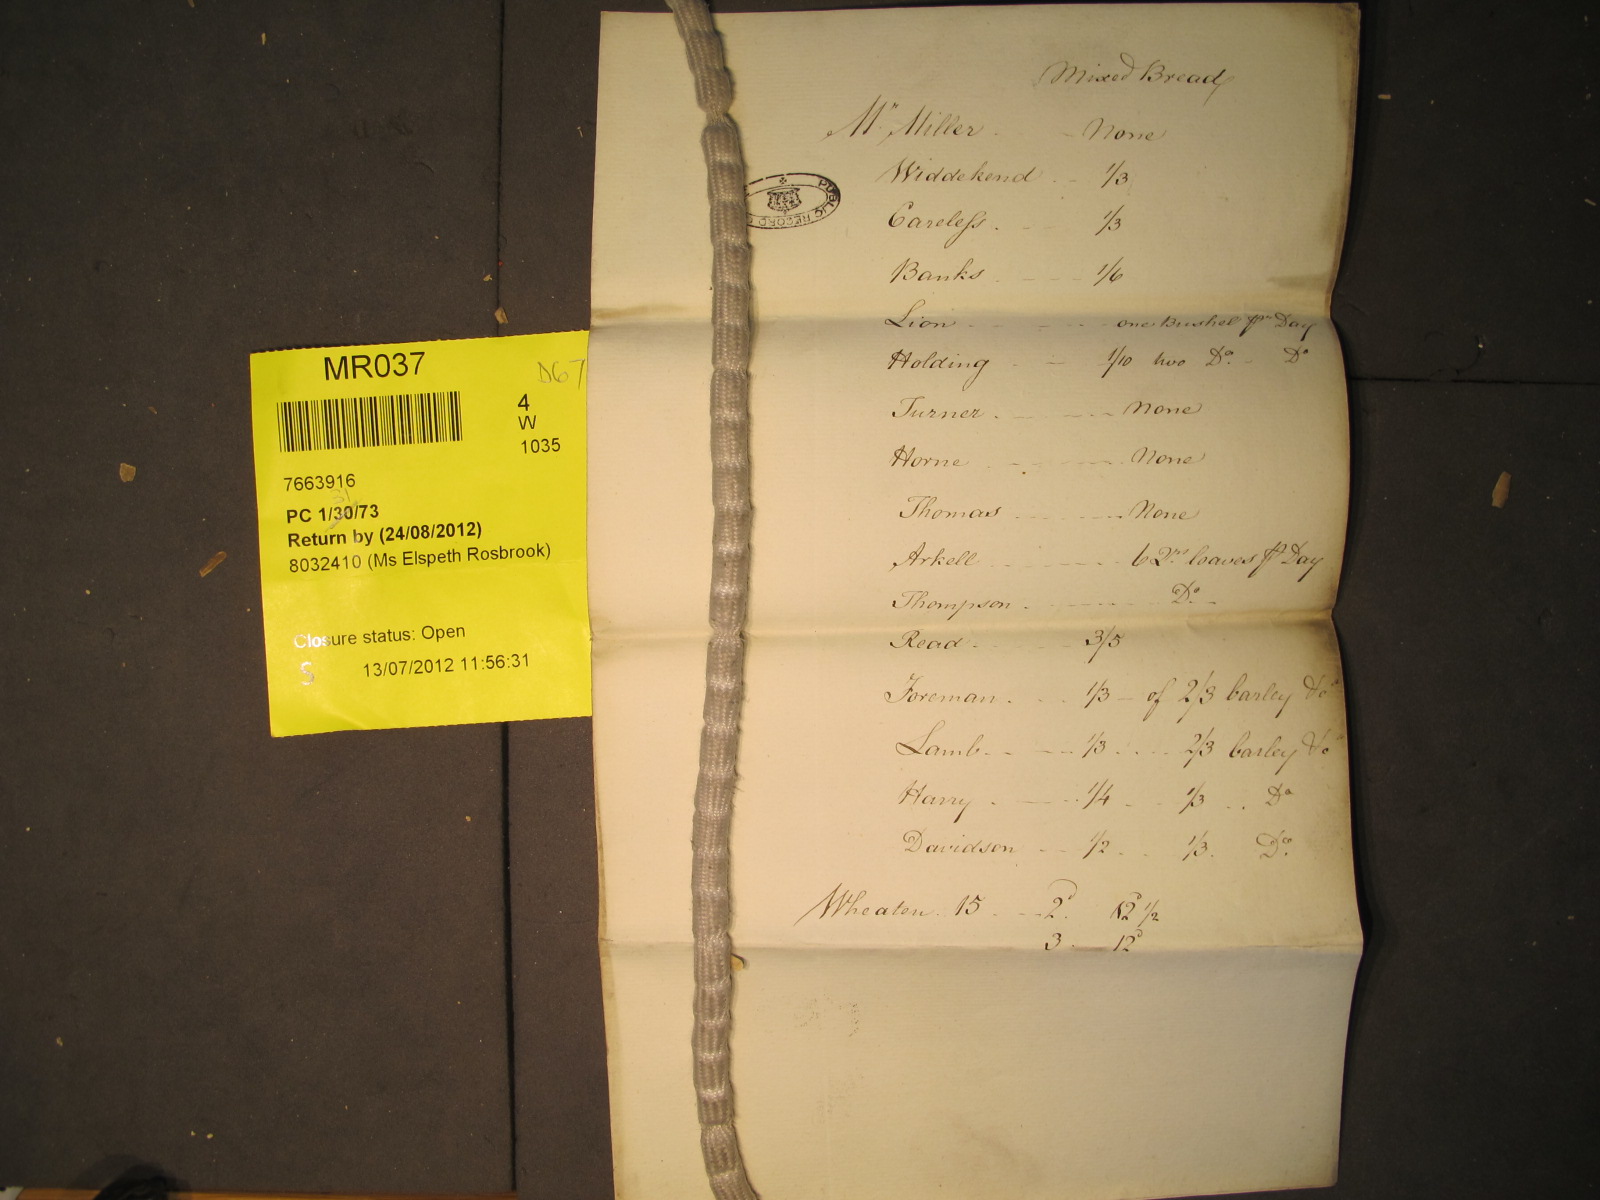 Mixed Bread
Mr Miller . - None
Widdekend . . - 1/3
Careless . - - 1/3
Banks . - - - 1/6
Lion - - - - one Bushel pr Day
Holding - 1/10 two Do. - Do
Turner . - - - None
Horne - - - None
Thomas - - - None
Arkell - - - 6 2rn loaves pr Day
Thompson . - - - Do -
Read - - - 3/5
Foreman . . . 1/3 - of 2/3 barley &c
Lamb - - - 1/3 . . . 2/3 barley &c
Harry . - - . 1/4 . 1/3 . . Do
Davidson - - 1/2 . . 1/3 . Do.
Wheaten . 15 . - - 2d. 12d 1/2
3 . 12d
PUBLIC RECORD
MR037
D67
4
W
1035
7663916
31
PC 1/30/73
Return by (24/08/2012)
8032410 (Ms Elspeth Rosbrook)
Closure status: Open
S 13/07/2012 11:56:31